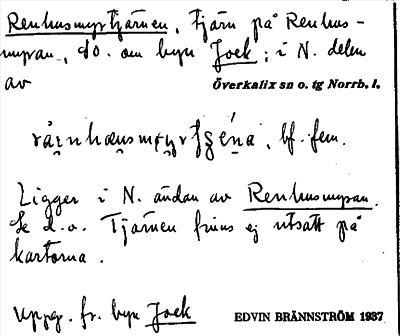 Renhusmyrtjärnen, Tjärn på Renhus-
myran, SO. om byn Jock; i N. delen
av Överkalix sn o. tg Norrb. l.
bf. fem.
Ligger i N. ändan av Renhusmyran.
Se d.o. Tjärnen finns ej utsatt på
kartorna.
Uppg. fr. byn Jock EDVIN BRÄNNSTRÖM 1937